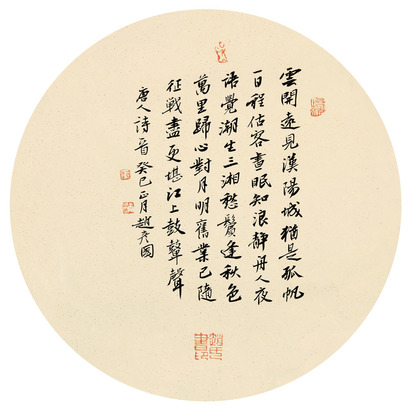 雲開遠見漢陽城猶是孤帆
一日程估客晝眠知浪靜舟人夜
語覺潮生三湘愁鬢逢秋色
萬里歸心對月明舊業已隨
征戰盡更堪江上鼓鼙聲
唐人詩一首癸巳正月趙彥國